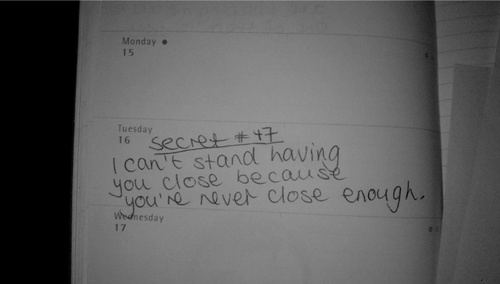 Monday
15
Tuesday
16 secret #47
I can't stand having
you close because
you're never close enough.
Wednesday
17